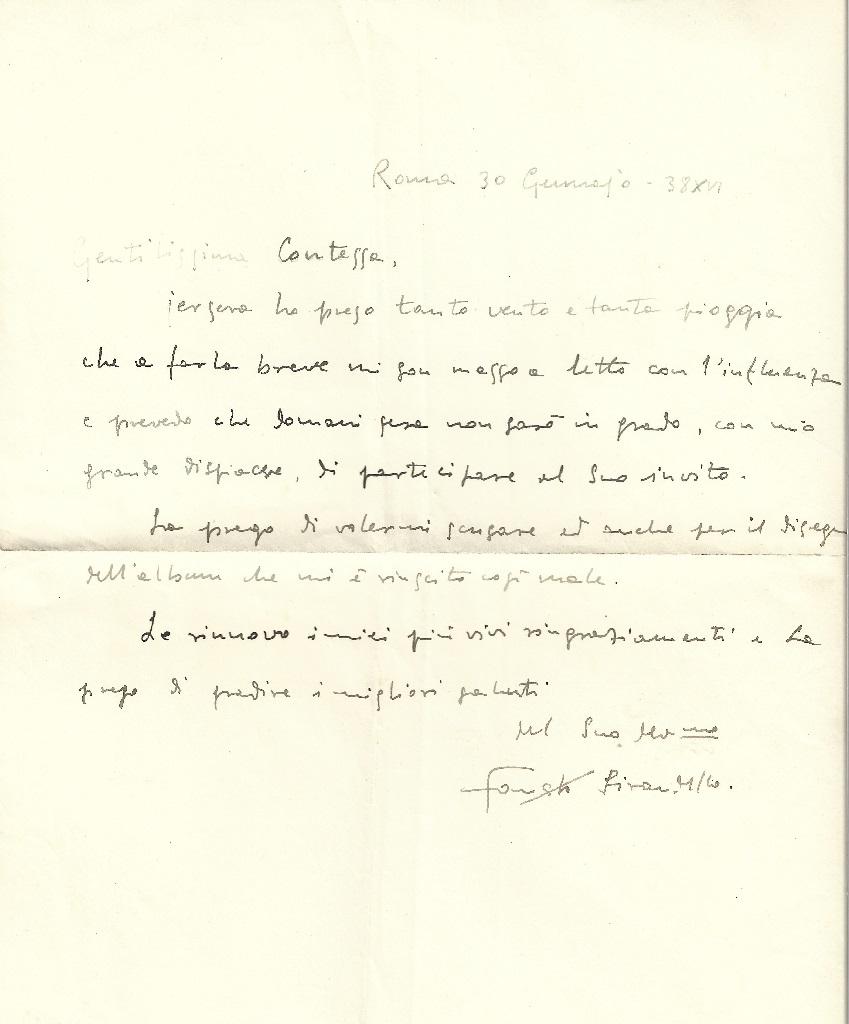 Roma 30 Gennajo - 38 XVI
Gentilissima Contessa,
jersera ho preso tanto vento e tanta pioggia
che a farla breve mi son messo a letto con l'influenza
e prevedo che domani sera non sarò in grado, con mio
grande dispiacere, di partecipare al Suo invito.
La prego di volermi scusare ed anche per il disegno
dell'album che mi è riuscito così male.
Le rinnovo i miei più vivi ringraziamenti e La
prego di gradire i migliori saluti
del Suo Dev mo
Fausto Pirandello.